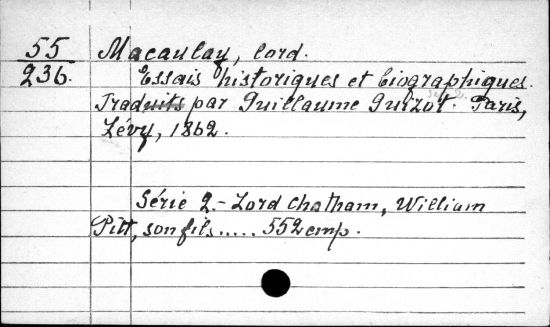 55 Macaulay, lord.
236. Essais historiques et biographiques.
Traduits par Guillaume Guizot. Paris,
Lévy, 1862.
Série 2.- Lord Chatham, William
Pitt, son fils ..... 552 cmp.